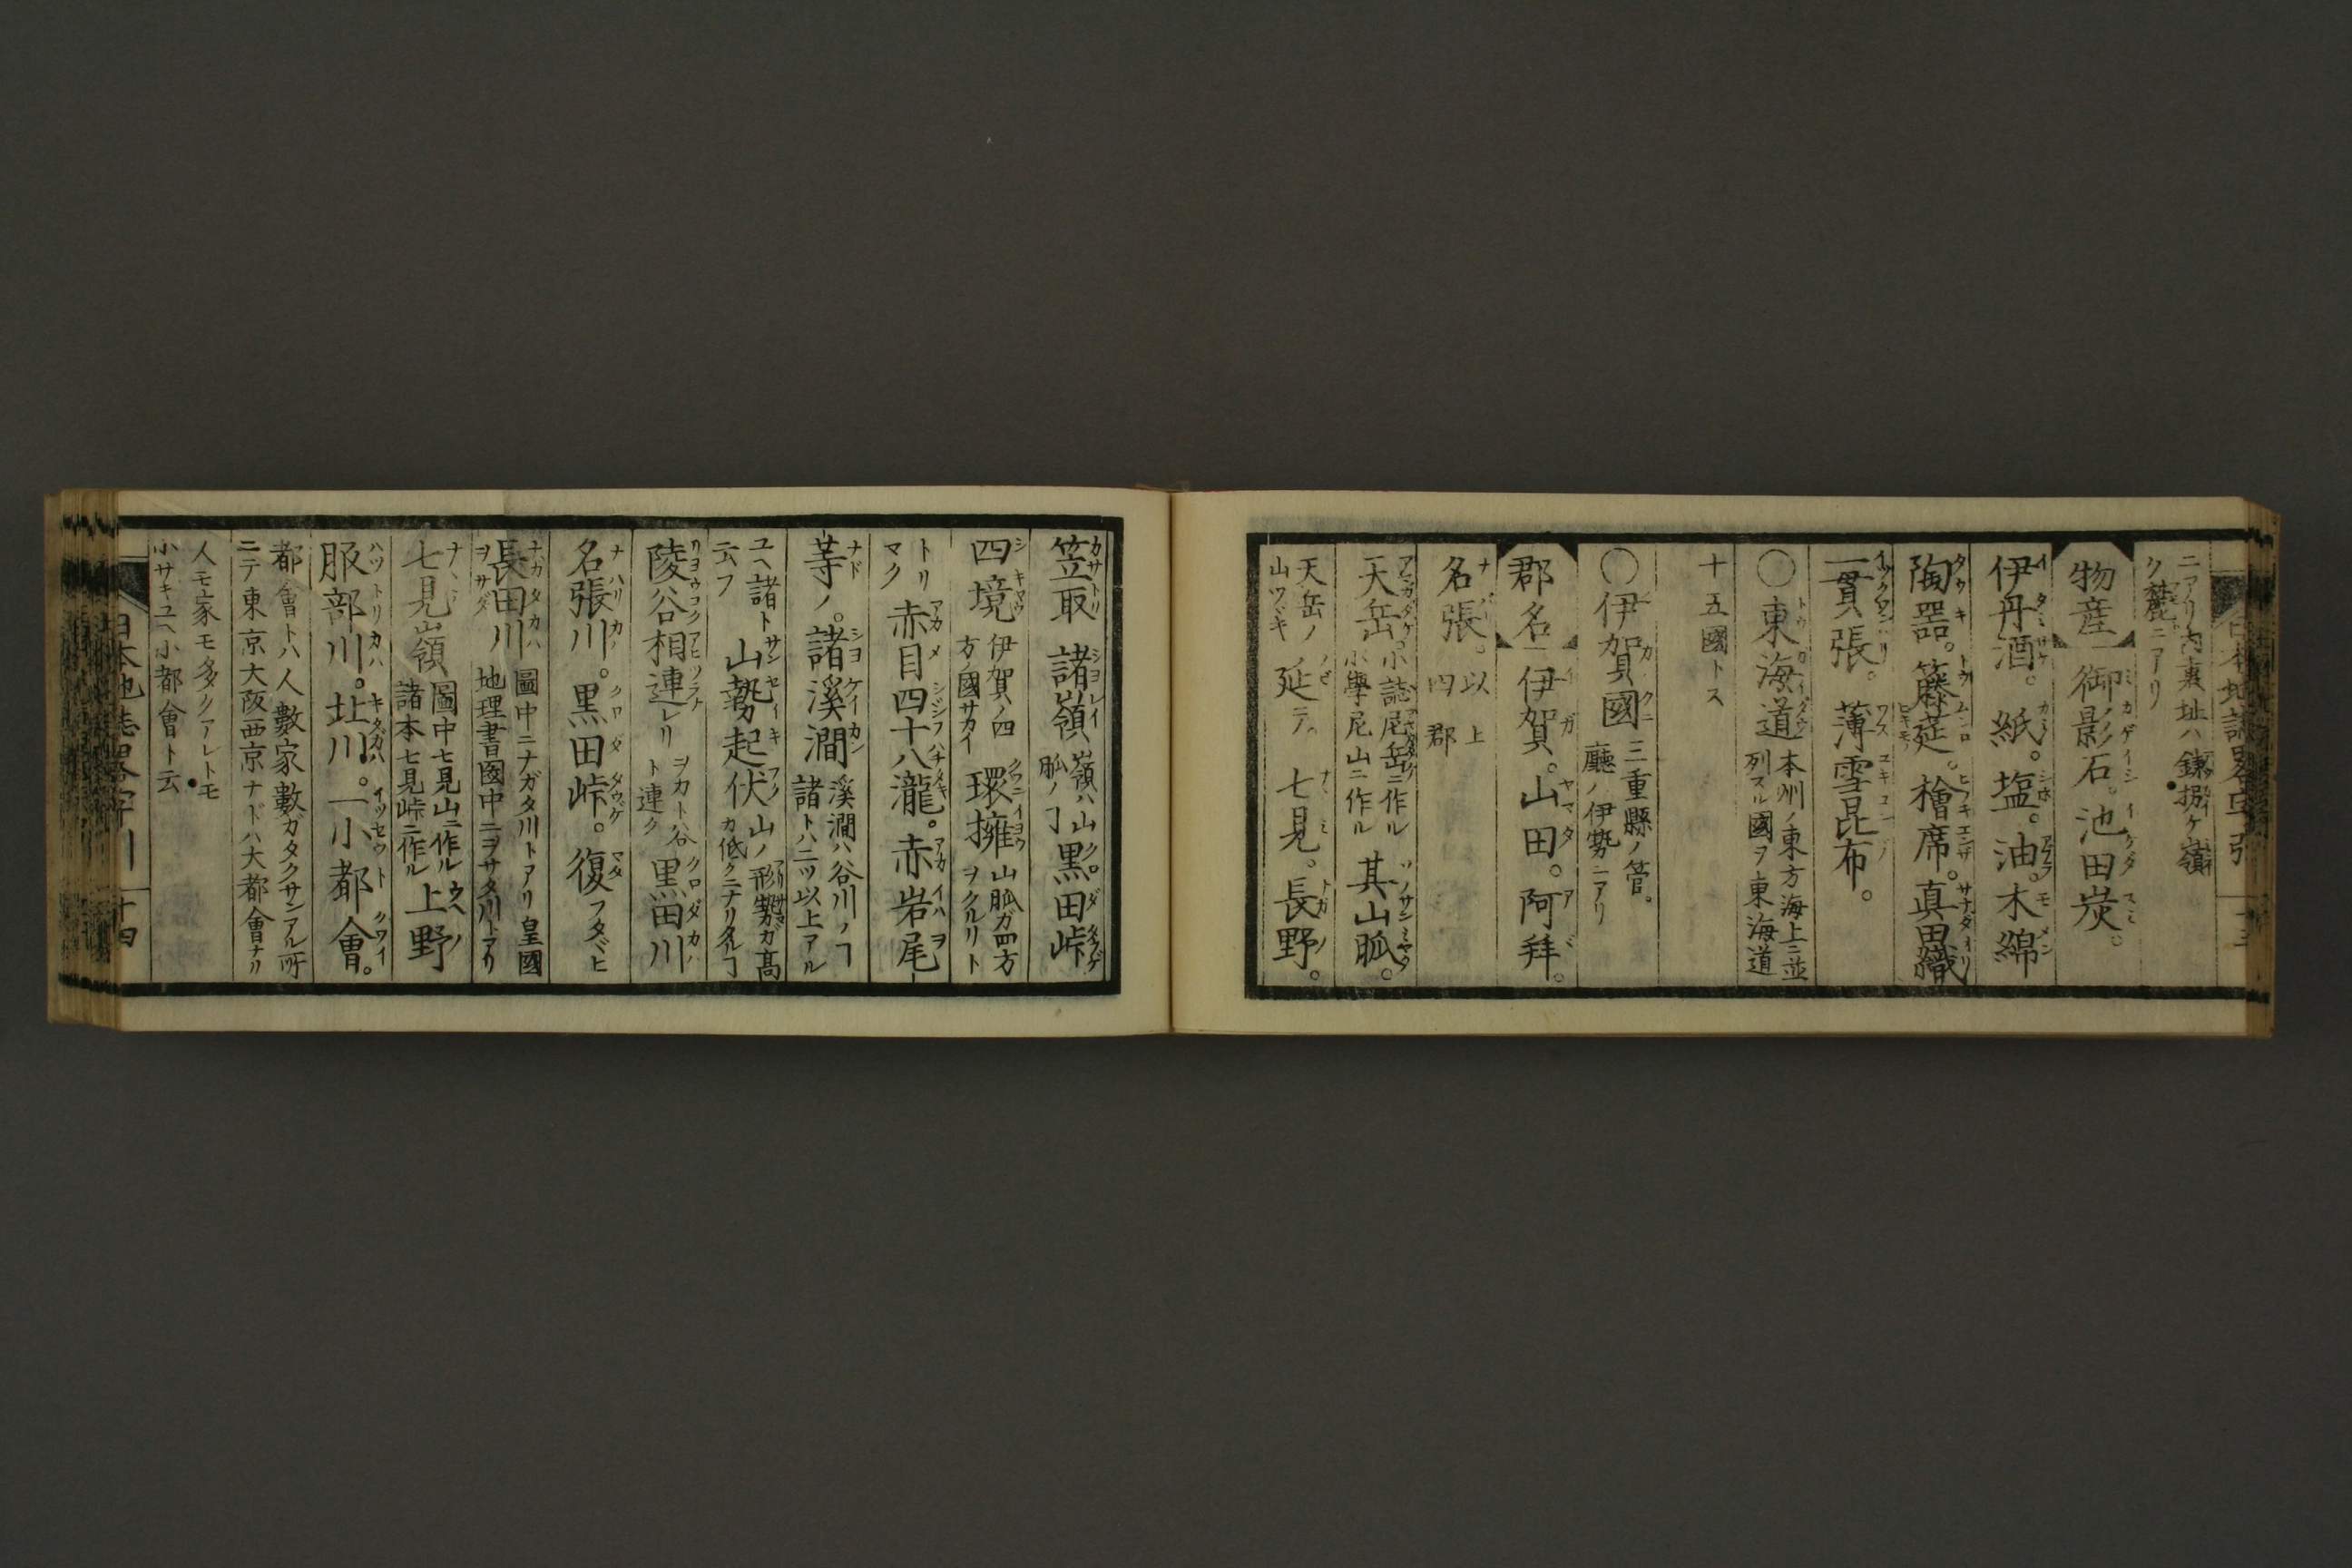 ニアリ内裏址ハ鐵拐ケ嶺
ク麓ニアリ
物産 御影石。池田炭。
伊丹酒。紙。塩。油。木綿
陶器。籐莚。檜席。真田織
一貫張。薄雪昆布。
〇東海道 本州ノ東方海上ニ並
列スル國ヲ東海道
十五國トス
〇伊賀國 三重縣ノ管。
廳ノ伊勢ニアリ
郡名 伊賀。山田。阿拜。
名張。以上
四郡
天岳。小誌尼岳ニ作ル
小學尼山ニ作ル 其山脈。
天岳ノ
山ツヅキ 延テ。七見。長野。
笠取 諸嶺 嶺ハ山
脈ノヿ 黒田峠
四境 伊賀ノ四
方ノ國サカイ 環擁 山脈ガ四方
ヲクルリト
トリ
マク 赤目四十八瀧。赤岩尾
等ノ。諸溪澗 溪澗ハ谷川ノヿ
諸トハ二ツ以上アル
ユヘ諸ト
云フ 山勢起伏 山ノ形勢ガ高
カ低クニナリタルヿ
陵谷相連レリ ヲカト谷
ト連ク 黒田川
名張川。黒田峠。復フタゝビ
長田川 圖中ニナガタ川トアリ皇國
地理書國中ニヲサタ川トアリ
七見嶺 圖中七見山ニ作ル
諸本七見峠ニ作ル 上野
服部川。北川。一小都會。
都會トハ人數家數ガタクサンアル所
ニテ東京大阪西京ナドハ大都會ナリ
人モ家モ多クアレトモ
小サキユヘ小都會ト云
十四